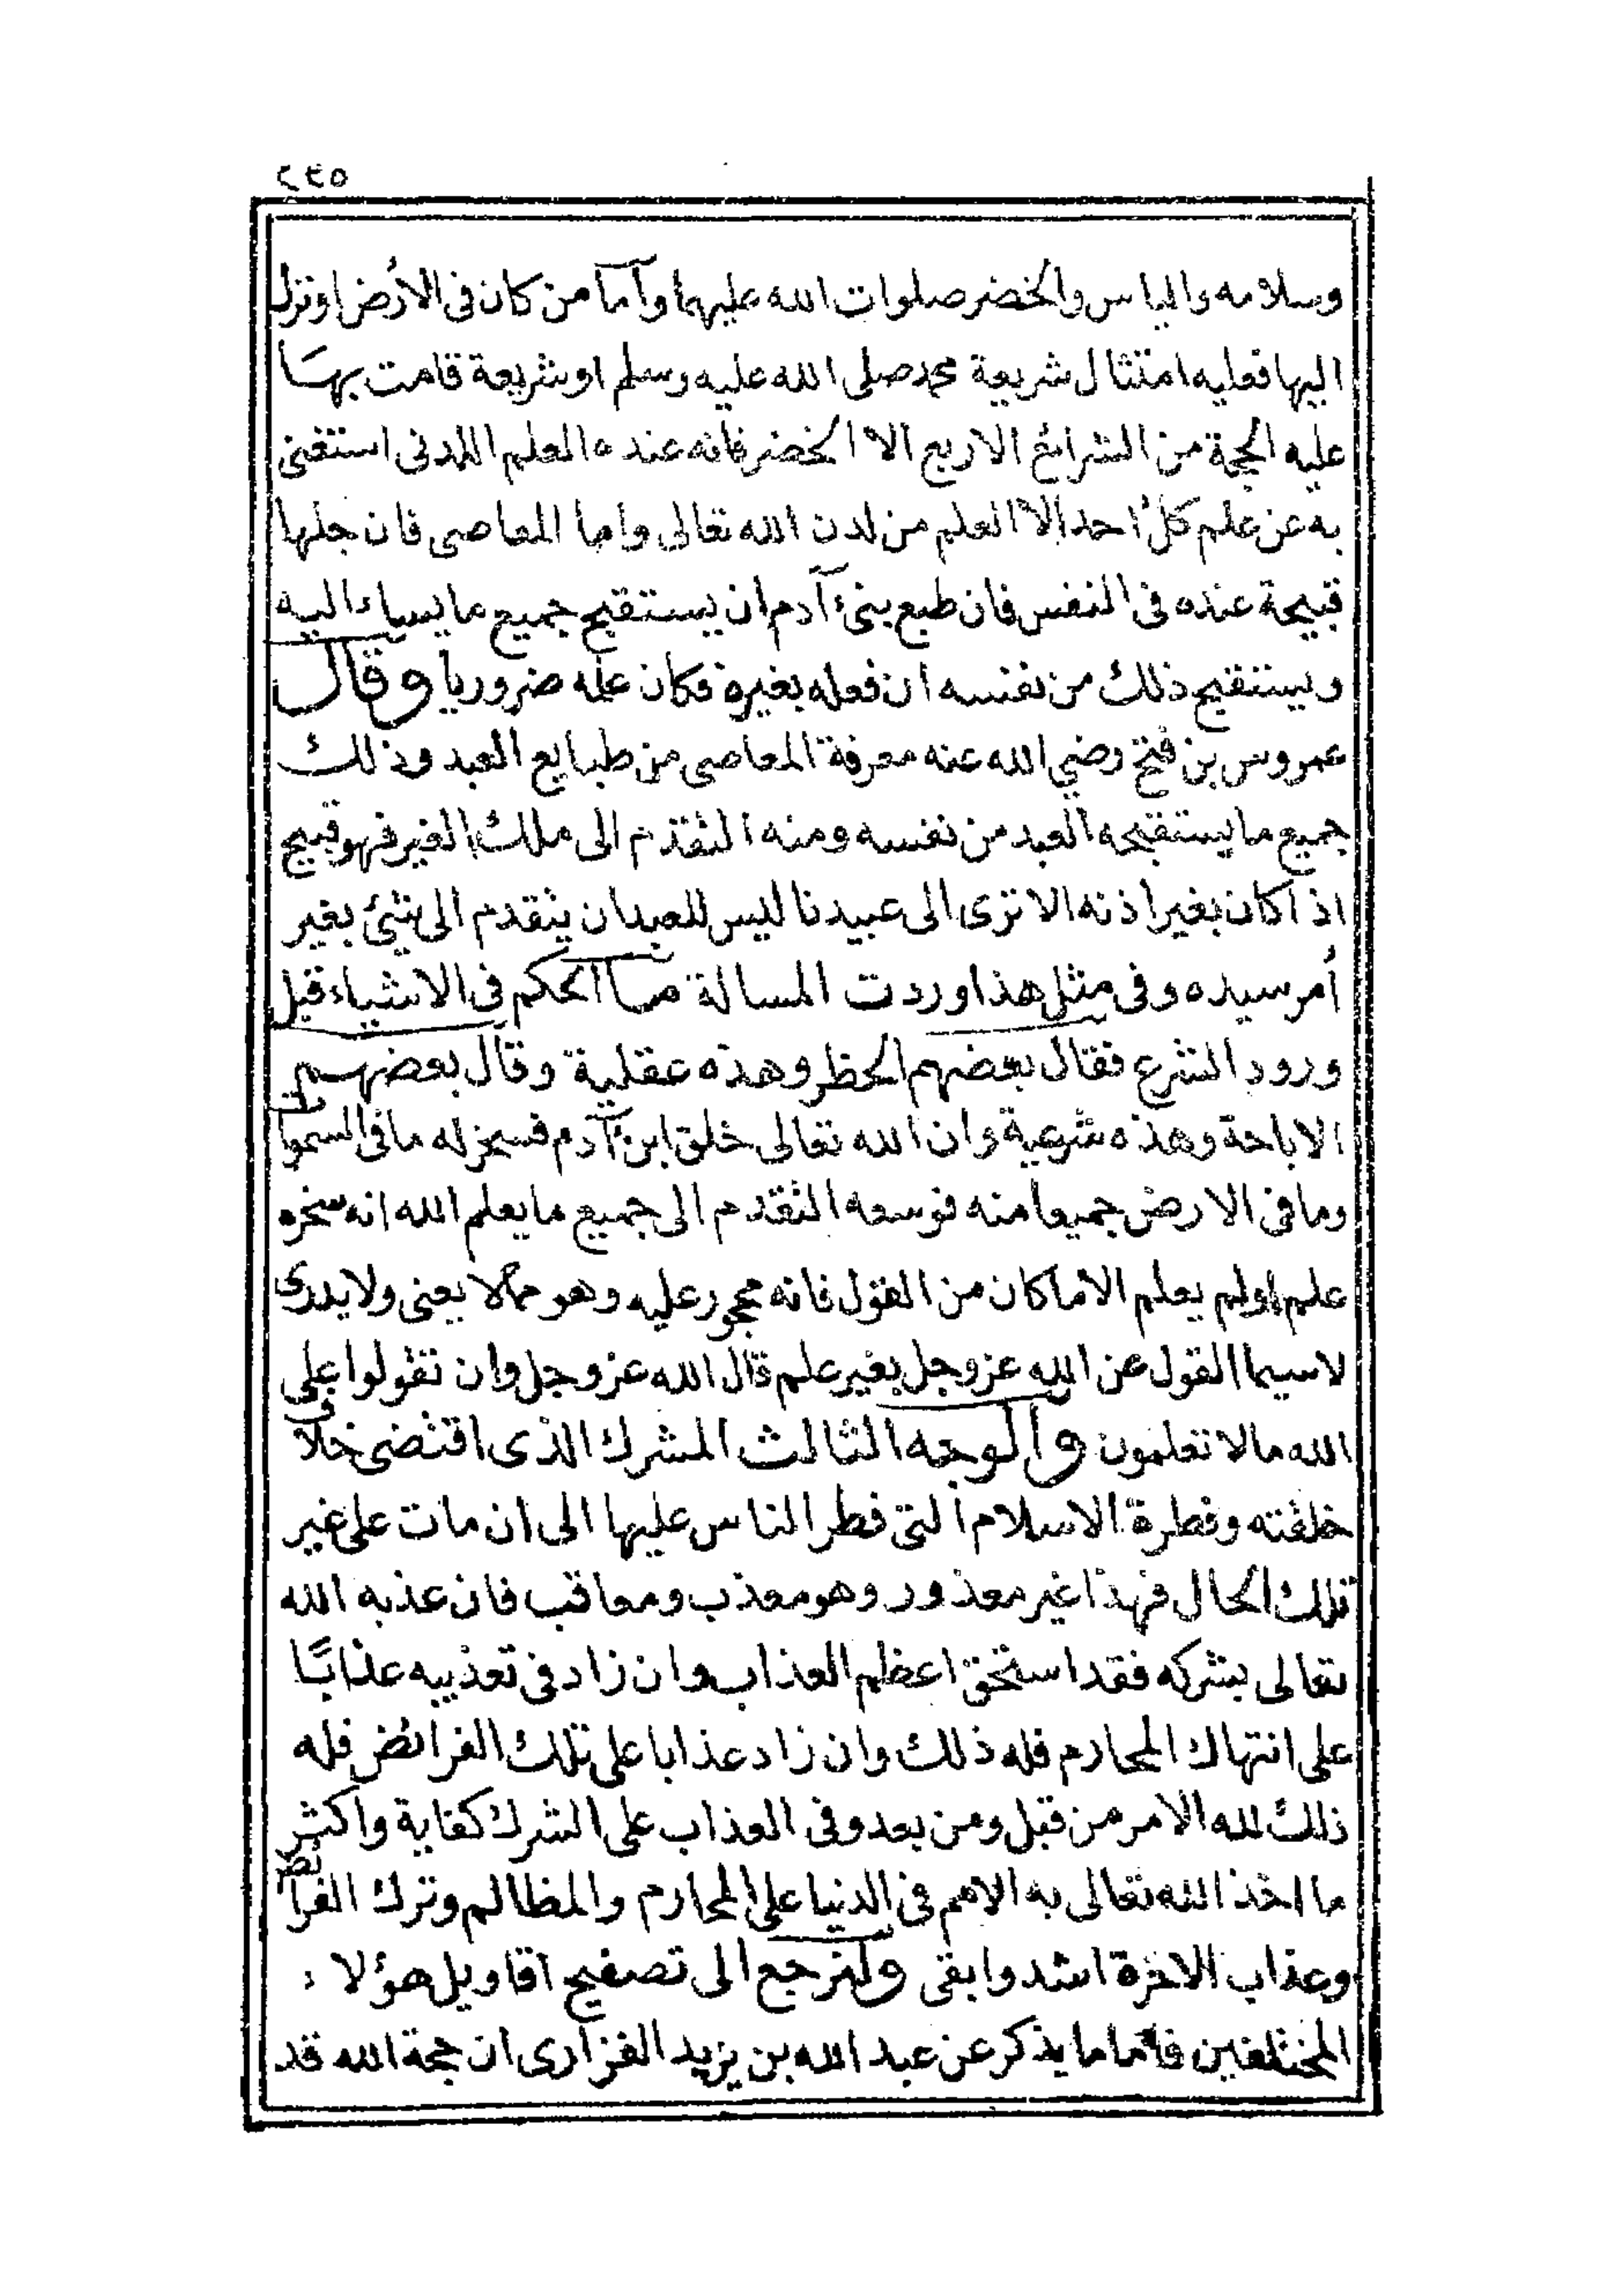 ٢٤٥
وسلامه والياس والخضر صلوات الله عليهما وأما من كان في الأرض او نزل
اليها فعليه امتثال شريعة محمد صلى الله عليه وسلم او شريعة قامت بها
عليه الحجة من الشرائع الاربع الا الخضر فانه عنده العلم اللدني استغنى
به عن علم كل احد الا العلم من لدن الله تعالى واما المعاصى فان جلها
قبيحة عنده في النفس فان طبع بنى آدم ان يستقبح جميع ما يساء اليه
ويستقبح ذلك من نفسه ان فعله بغيره فكان علمه ضروريا وقال
عمروس بن فتح رضي الله عنه معرفة المعاصى من طبايع العبد وذلك
جميع ما يستقبحه العبد من نفسه ومنه التقدم الى ملك الغير فهو قبيح
اذا كان بغير اذنه الا ترى الى عبيدنا ليس للعبد ان يتقدم الى شئ بغير
أمر سيده وفى مثل هذا وردت المسالة ما الحكم في الاشياء قبل
ورود الشرع فقال بعضهم الحظر وهذه عقلية وقال بعضهم
الاباحة وهذه شرعية وان الله تعالى خلق ابن آدم فسخر له ما في السموات
وما فى الارض جميعا منه فوسعه التقدم الى جميع ما يعلم الله انه سخره
علم اولم يعلم الا ما كان من القول فانه محجور عليه وهو مما لا يعنى ولا يدرى
لاسيما القول عن الله عز وجل بغير علم قال الله عز وجل وان تقولوا على
الله ما لا تعلمون والوجه الثالث المشرك الذى اقتضى خلاف
خلقته وفطرة الاسلام التى فطر الناس عليها الى ان مات على غير
تلك الحال فهذا غير معذور وهو معذب ومعاقب فان عذبه الله
تعالى بشركه فقد استحق اعظم العذاب وان زاد فى تعذيبه عذابًا
على انتهاك المحارم فله ذلك وان زاد عذابا على تلك الفرائض فله
ذلك لله الامر من قبل ومن بعد وفى العذاب على الشرك كفاية واكثر
ما اخذ الله تعالى به الامم فى الدنيا على المحارم والمظالم وترك الفرائض
وعذاب الاخرة اشد وابقى ولنرجع الى تصفيح اقاويل هؤلاء
المختلفين فأما ما يذكر عن عبد الله بن يزيد الفزارى ان حجة الله قد